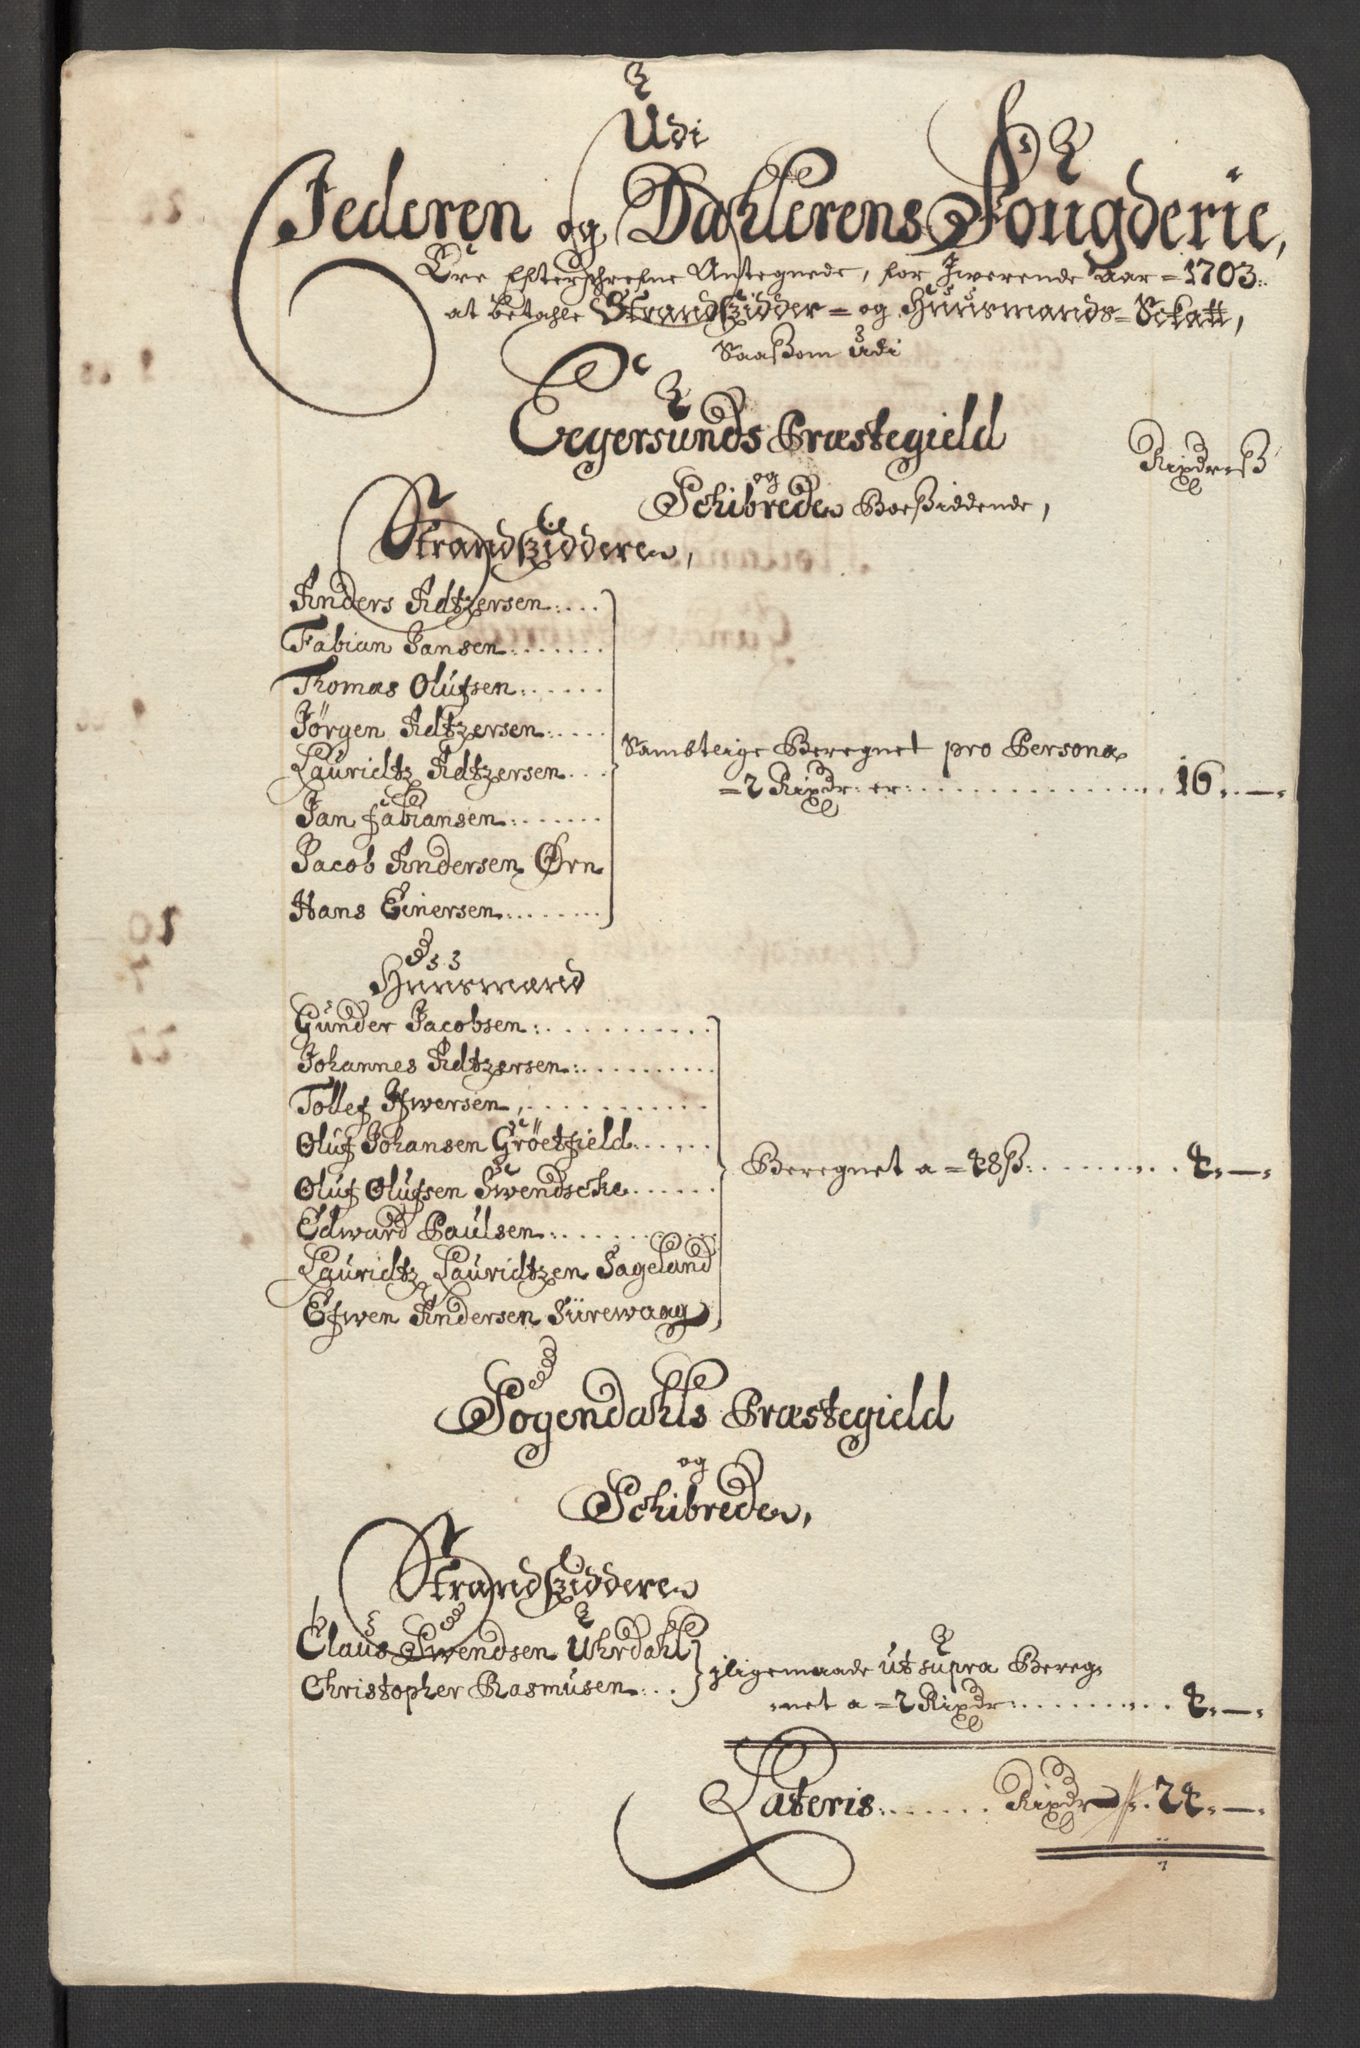 Udi
Jederen og Dahlerens Fougderie,
Ere Efterschrefne Antegnede, for Jwerende Aar = 1703:
at betahle Strandszidder = og Huusmands = Sckatt,
Saaßom udi
Eegersunds Præstegield
Rixdr ß
og
Schibrede Boeßiddende,
Strandsziddere,
Anders Adtzersen
Fabian Jansen
Thomas Olufsen
Jørgen Adtzersen
Lauridtz Adtzersen
Jan Fabiansen
Jacob Andersen Ørn
Hans Einersen
Sambtlige Beregnet pro Persona
= 2 Rixdr: er: 16 „ — „
Huusmænd
Gunder Jacobsen
Johannes Adtzersen
Tollef Ifwersen
Oluf Johansen Gröetfield
Oluf Olufsen Swendscke
Edward Paulsen
Lauridtz Lauridtzen Sageland
Efwen Andersen Sürewaag
Beregnet a = 48 ß: 4 „ — „
Sogendahls Præstegield
og
Schibrede,
Strandsziddere
Claus Swendsen Uhrdahl
Christopher Rasmusen
jligemaade ut supra Bereg-
net a = 2 Rixdr: 4 „ — „
Lateris: Rixdr 24 „ — „